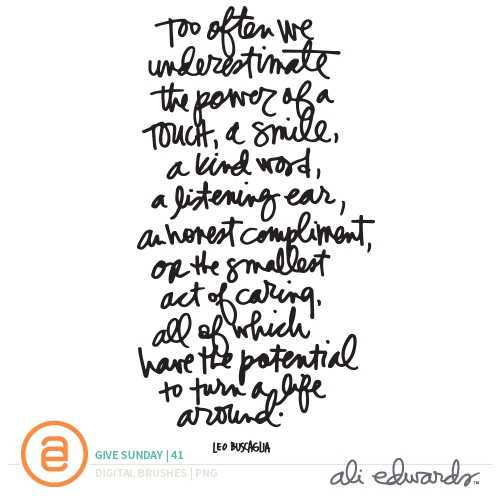 Too often we
underestimate
the power of a
TOUCH, a smile,
a kind word,
a listening ear,
an honest compliment,
or the smallest
act of caring,
all of which
have the potential
to turn a life
around.
LEO BUSCAGLIA
ae
GIVE SUNDAY | 41
DIGITAL BRUSHES | PNG
ali edwards™